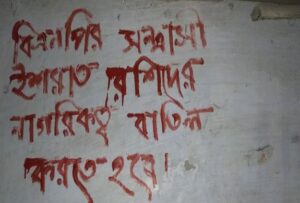 বিএনপির সন্ত্রাসী
ইশরাত রশিদের
নাগরিকত্ব বাতিল
করতে হবে।